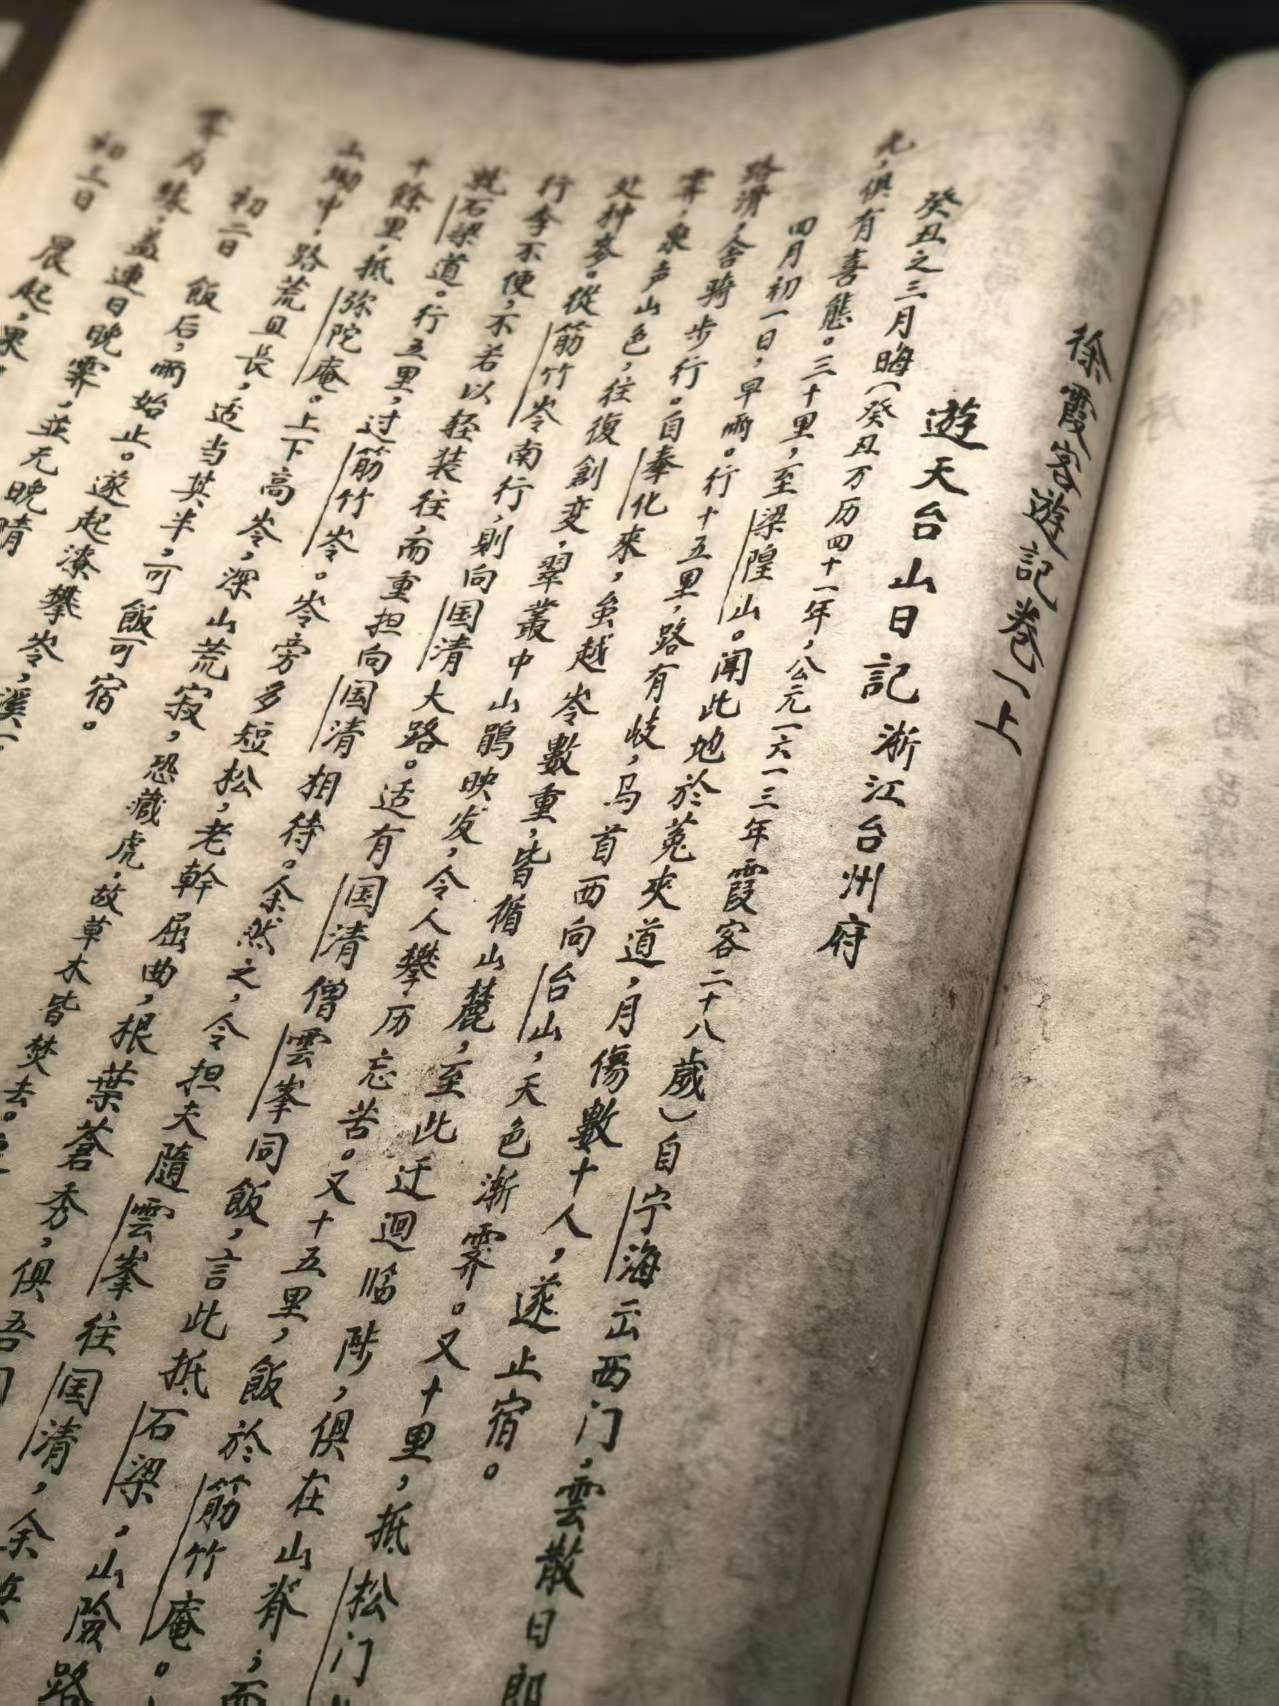 徐霞客遊記卷一上
遊天台山日記 浙江台州府
癸丑之三月晦(癸丑万历四十一年,公元一六一三年霞客二十八歲)自宁海出西门,雲散日郎
光,俱有喜態。三十里,至梁隍山。聞此地於菟夾道,月傷數十人,遂止宿。
四月初一日,早雨。行十五里,路有岐,马首西向台山,天色漸霽。又十里,抵松门
路滑,舍騎步行。自奉化來,虽越岺數重,皆循山麓,至此迂迴临陟,俱在山脊;而
霽,泉声山色,往復創变,翠叢中山鵑映发,令人攀历忘苦。又十五里,飯於筋竹庵。
处种麥。從筋竹岺南行,則向国清大路。适有国清僧雲峯同飯,言此抵石梁,山險路
行李不便,不若以轻装往,而重担向国清相待。余然之,令担夫隨雲峯往国清,余
就石梁道。行五里,过筋竹岺。岺旁多短松,老幹屈曲,根葉蒼秀,俱吾
十餘里,抵弥陀庵。上下高岺,深山荒寂,恐藏虎,故草木皆焚去。
山坳中,路荒且長,适当其半,可飯可宿。
初二日 飯后,雨始止。遂起潦攀岺,溪
为緣,盖連日晚霽,並无晚晴
初三日 晨起,果